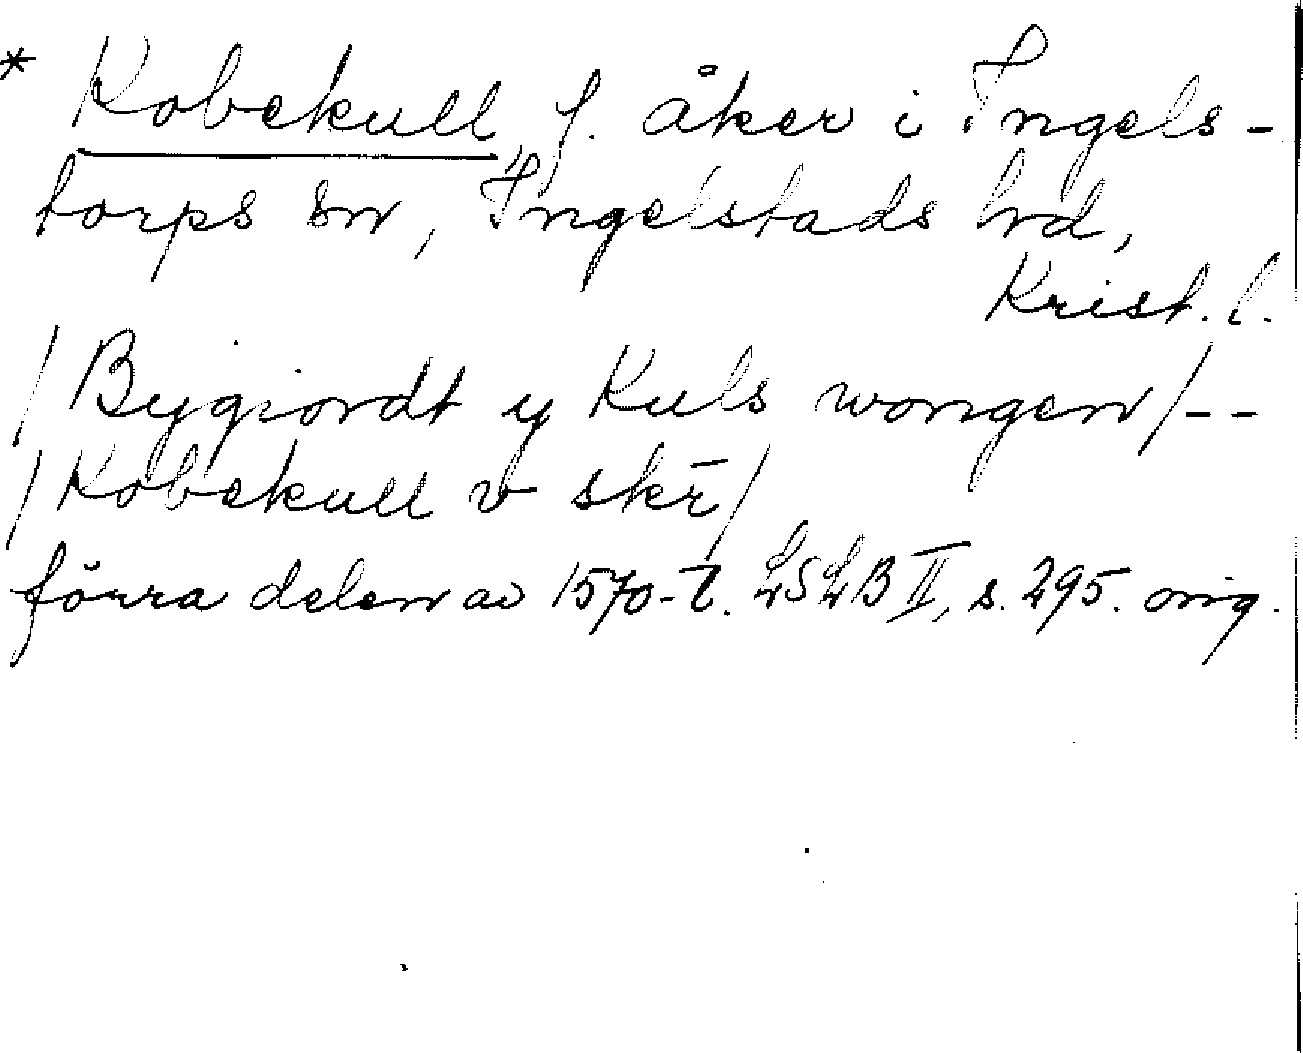 * Kobekull f. åker i Ingels-
torps sn, Ingelstads hd,
Krist. l.
/Bygiordt y Kuls wongen/--
/Kobekull v skr̄/
förra delen av 1570-t. LSLB II, s. 295. orig.